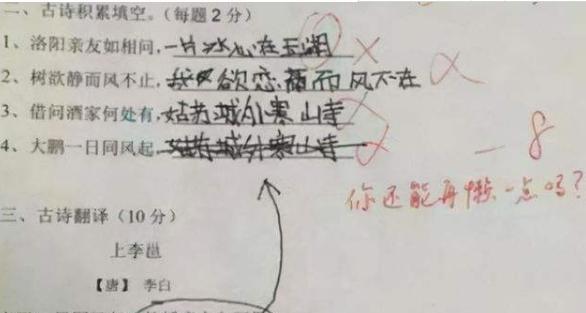 二、古诗积累填空。(每题2分)
1、洛阳亲友如相问,一片冰心在玉湖
2、树欲静而风不止,我欲恋而风不在
3、借问酒家何处有,姑苏城外寒山寺
4、大鹏一日同风起,姑苏城外寒山寺
-8
你还能再懒一点吗?
三、古诗翻译(10分)
上李邕
【唐】 李白